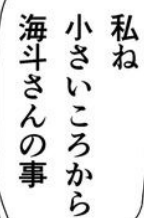 私ね
小さいころから
海斗さんの事